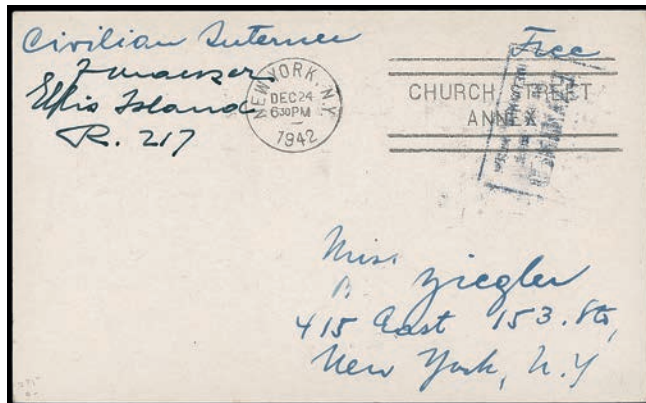 Civilian Internee
Free
Ellis Island
R. 217
NEW YORK, N.Y.
DEC 24
630 PM
1942
CHURCH STREET
ANNEX
Ziegler
415 East 153. Str,
New York, N.Y